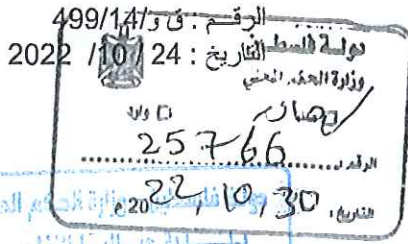 الرقم : ق و/499/14
التاريخ : 24 /10 / 2022
دولة فلسطين
وزارة الحكم المحلي
صادر
وارد
الرقم: 25766
التاريخ: 22, 10, 30 20م